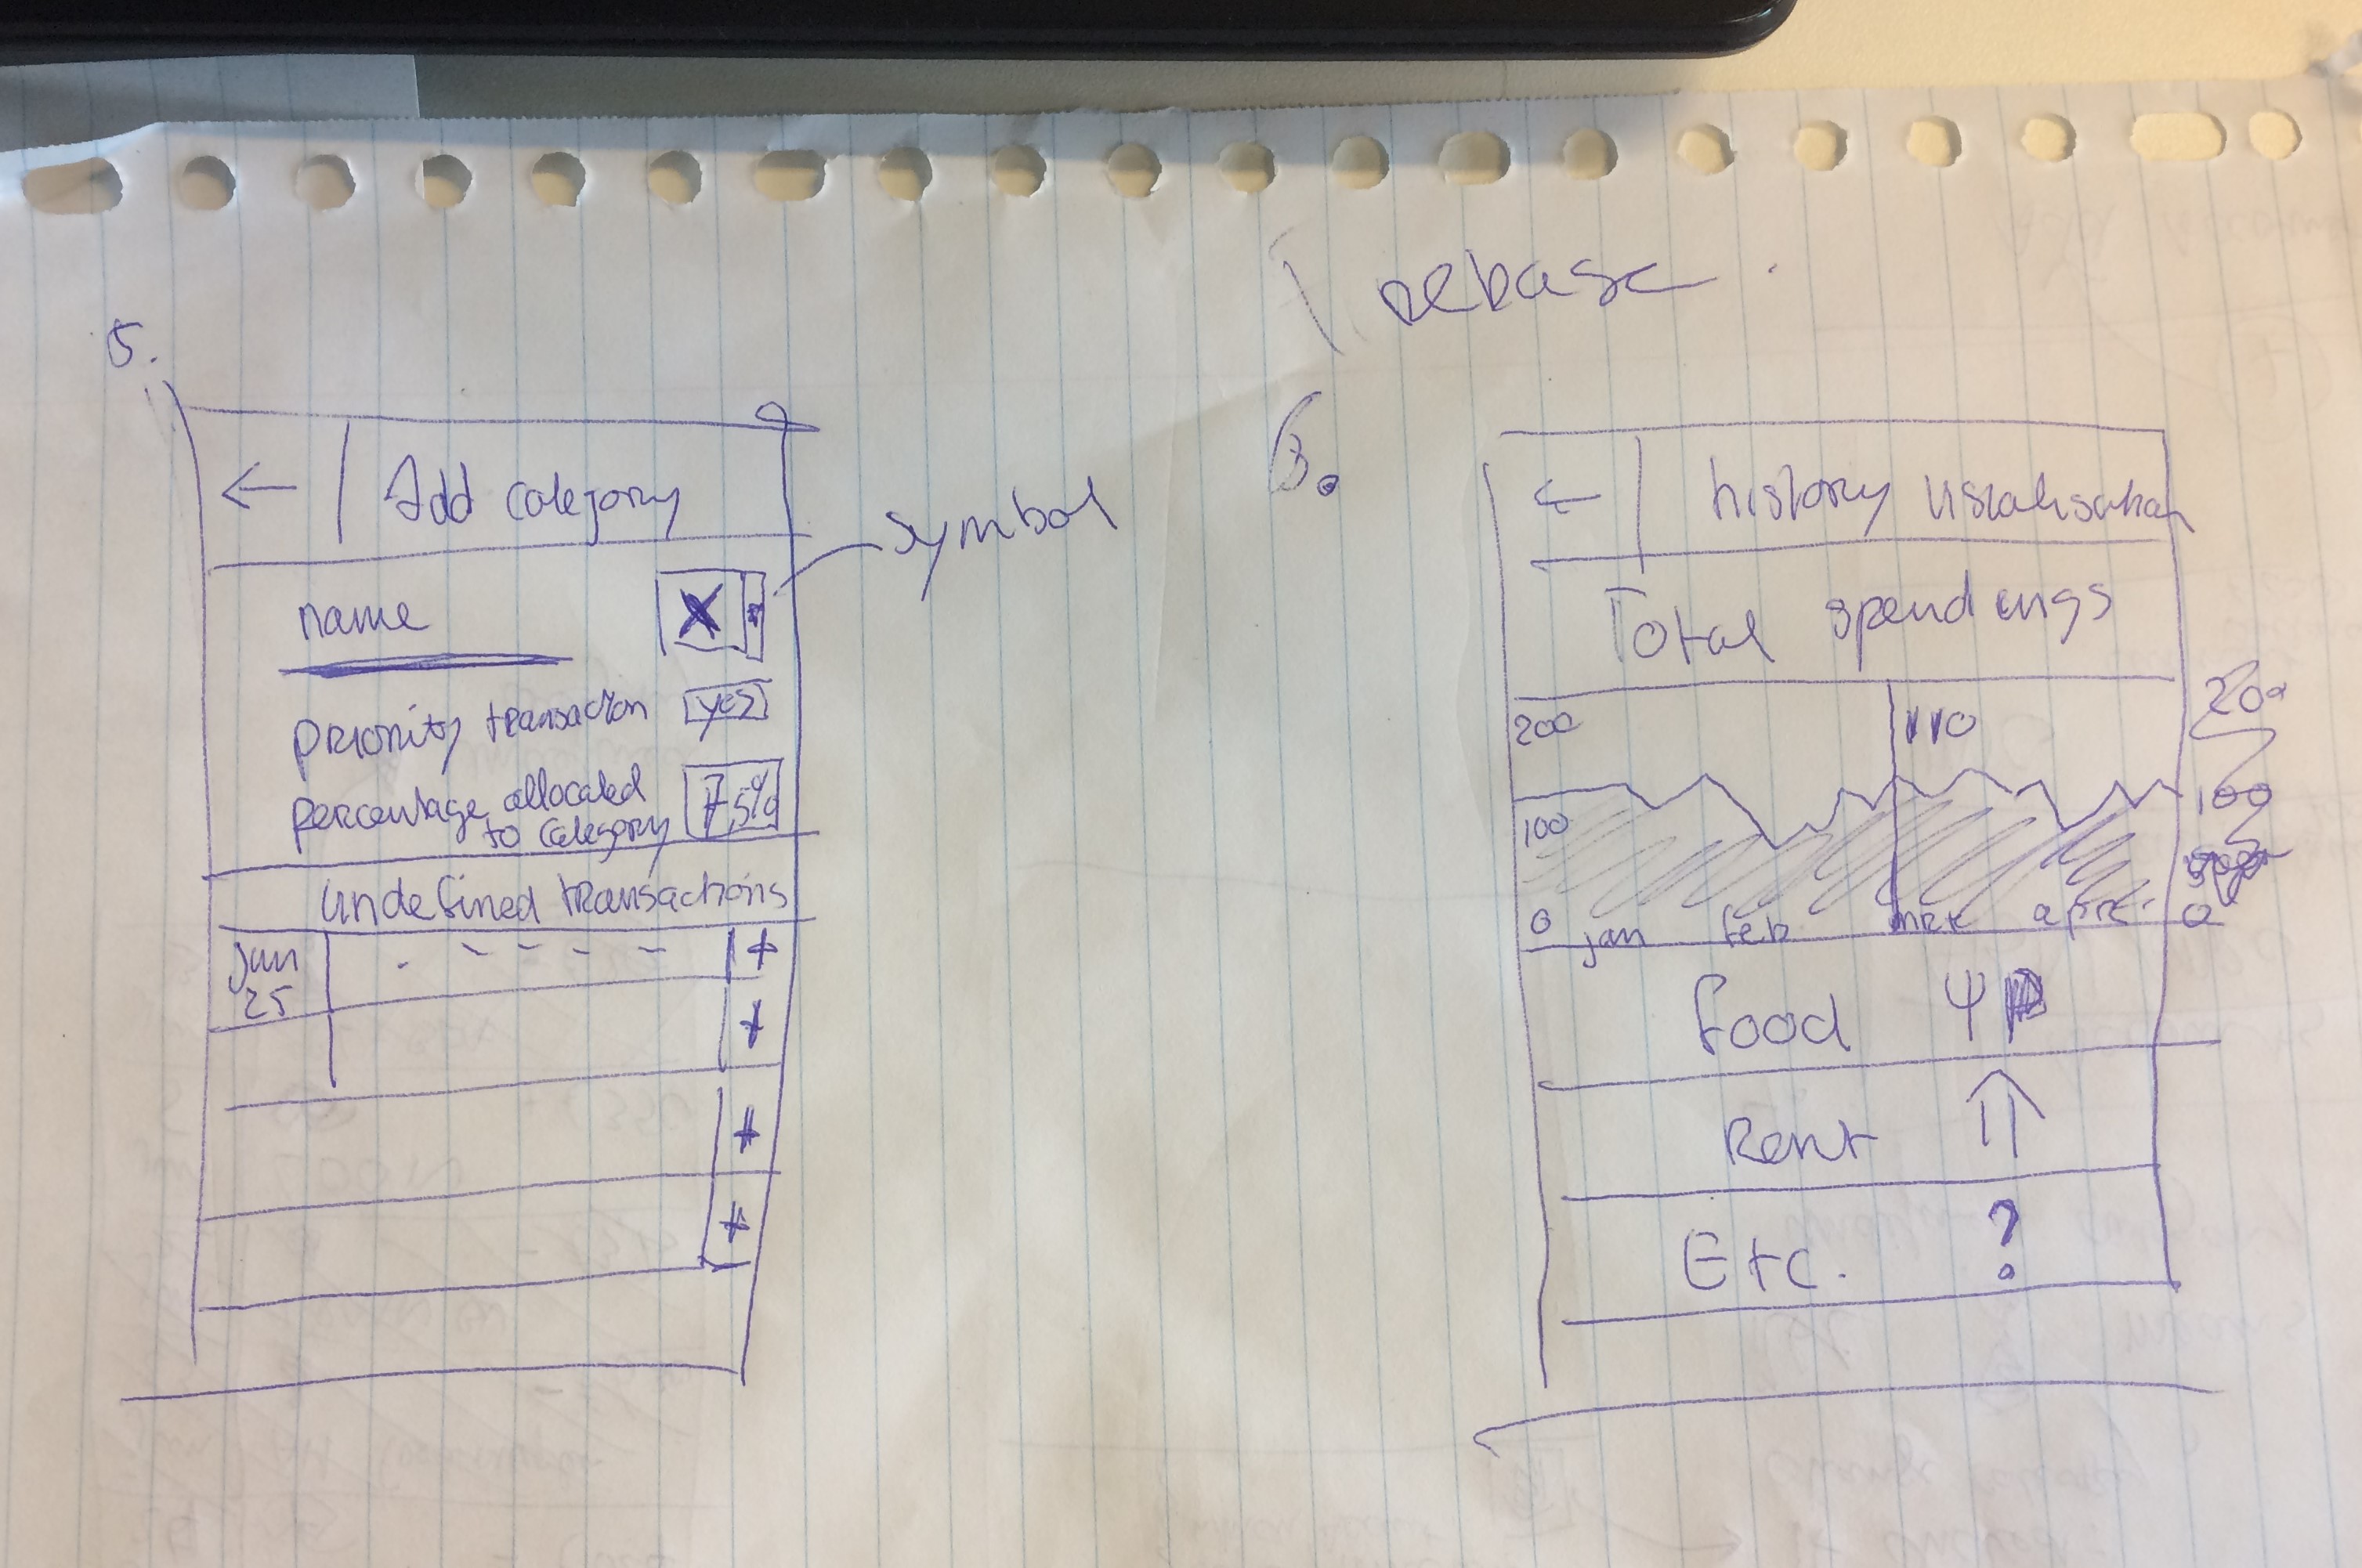 rebase.
5.
← Add category
symbol
name X
priority transaction yes
percentage allocated
to category 7,5%
undefined transactions
jan
25
- - - - - +
+
+
+
6.
← history visualisation
Total spendings
200 110
100
0 jan feb mrt apr.
200
100
0
food
Rent
Etc. ?